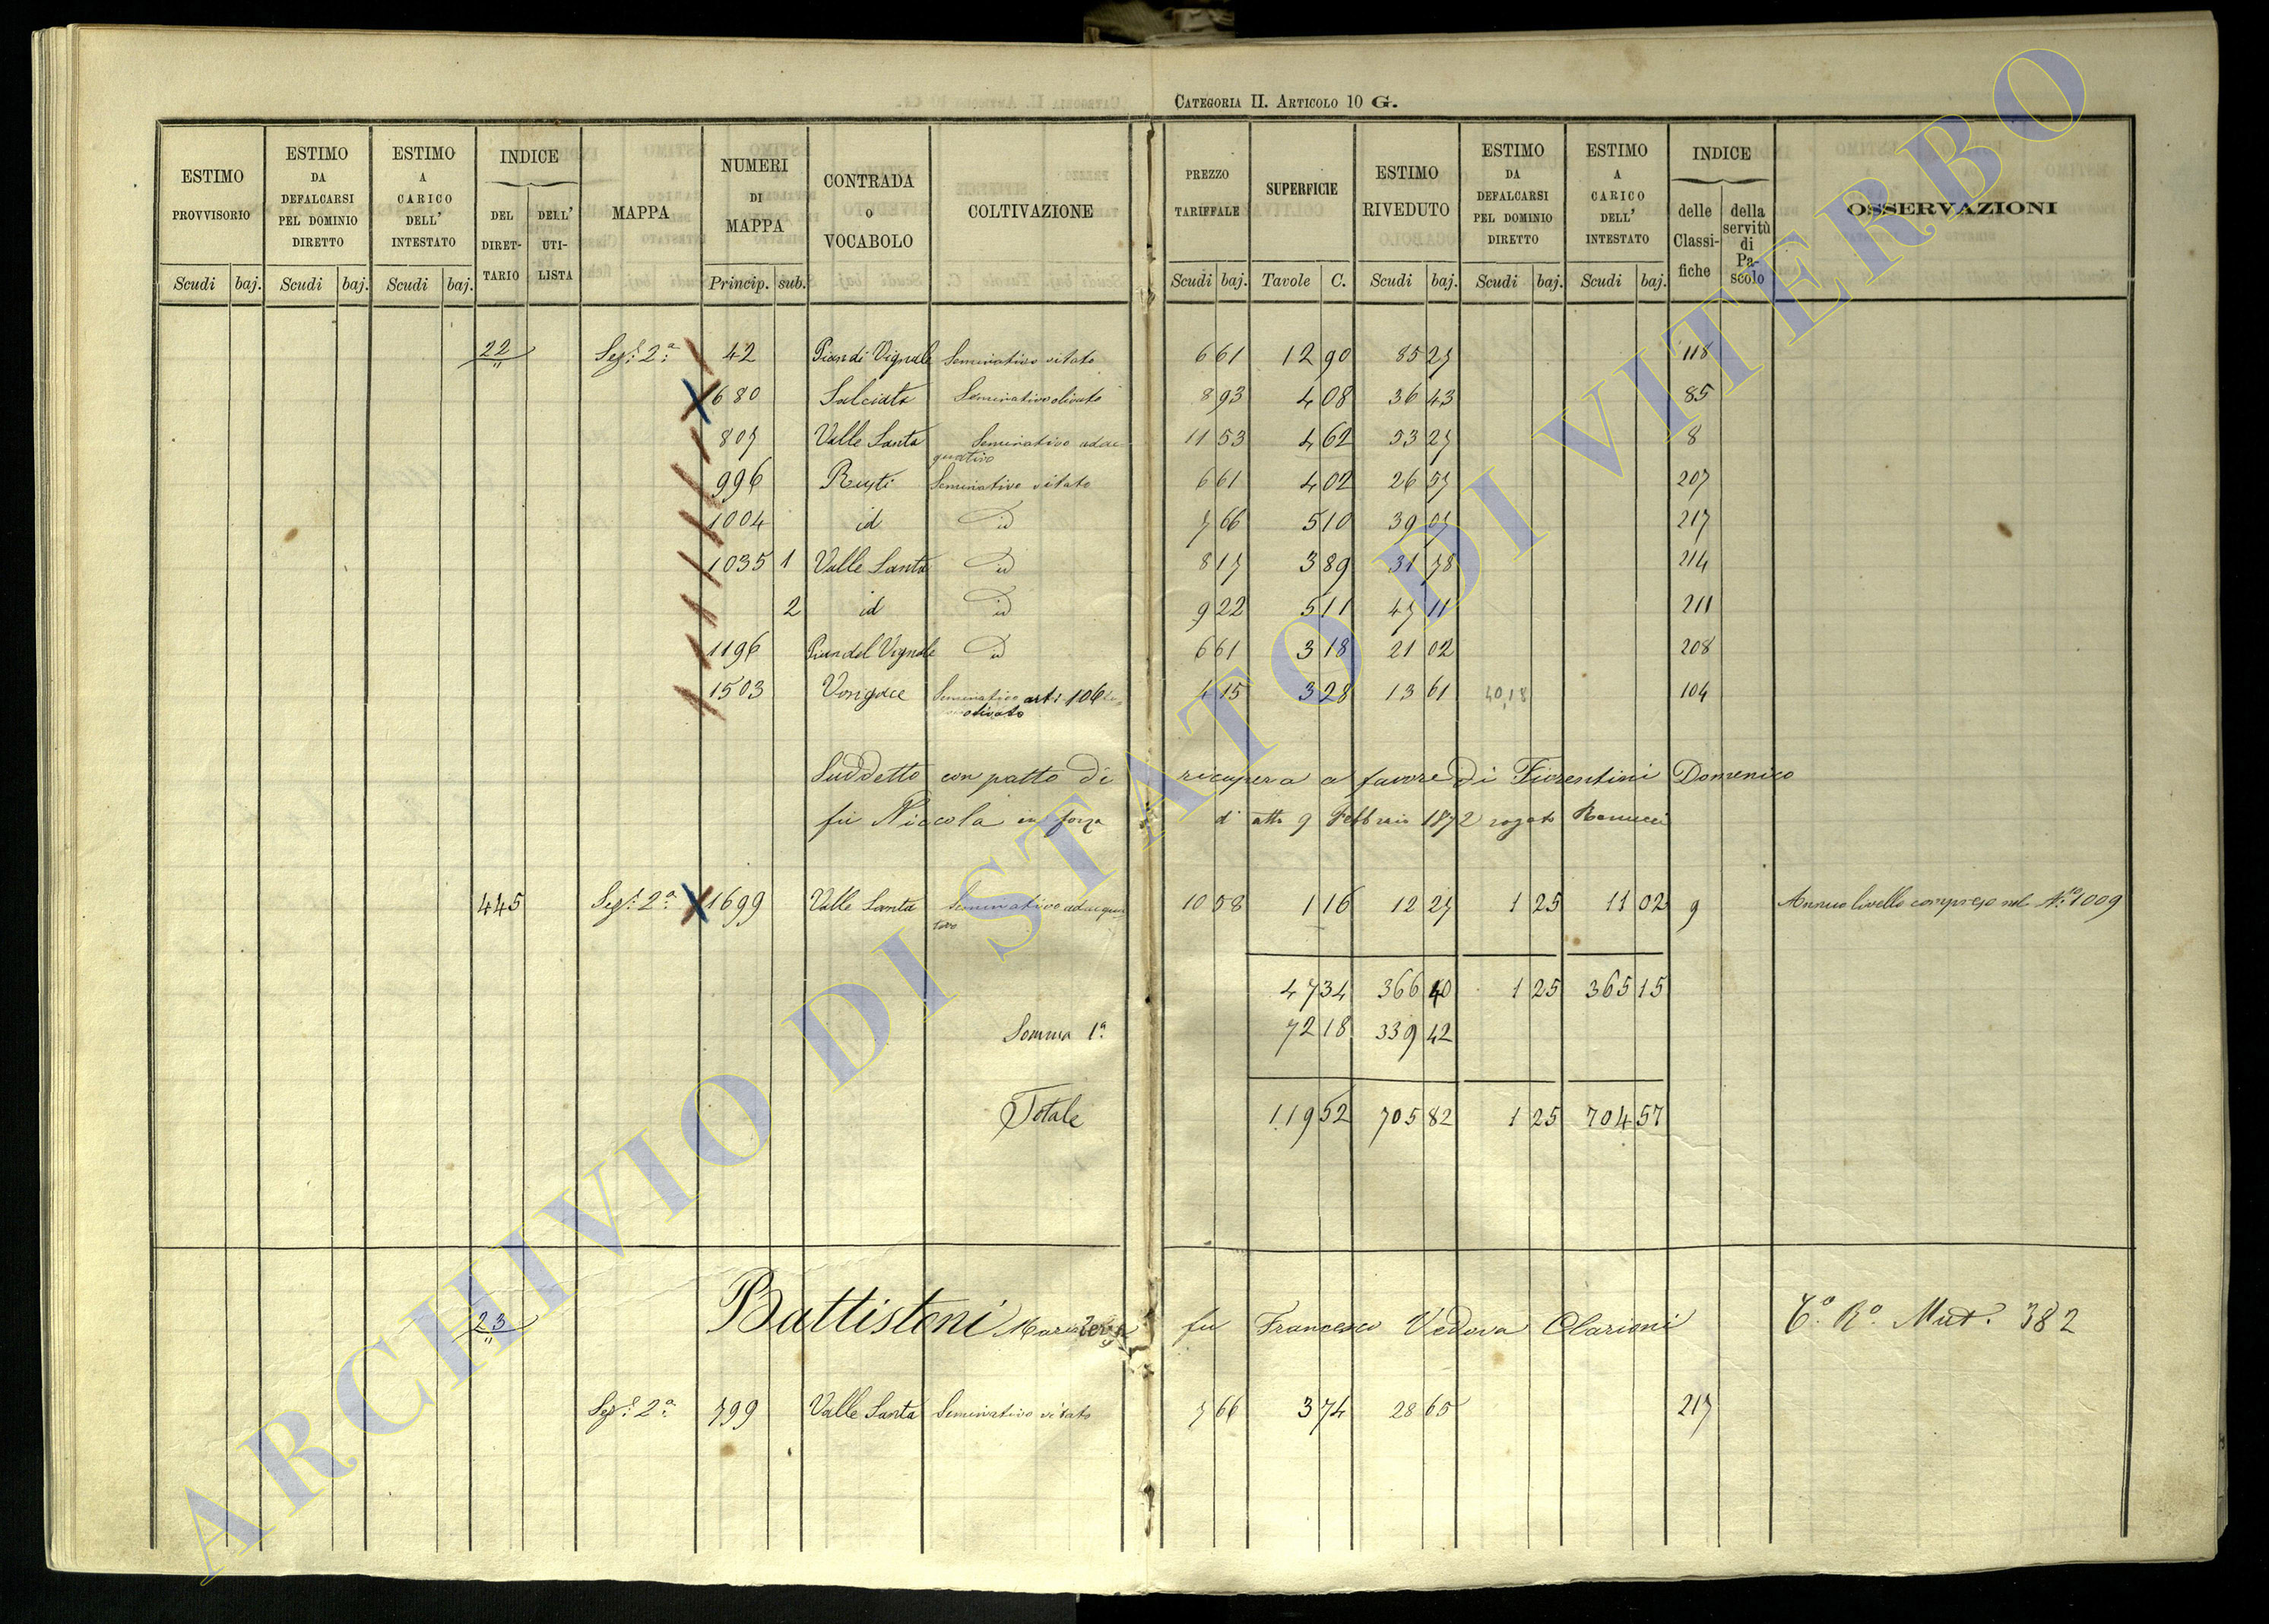 CATEGORIA II. ARTICOLO 10 G.
ESTIMO PROVVISORIO Scudi baj.
ESTIMO DA DEFALCARSI PEL DOMINIO DIRETTO Scudi baj.
ESTIMO A CARICO DELL' INTESTATO Scudi baj.
INDICE DEL DIRETTARIO DELL' UTILISTA
MAPPA
NUMERI DI MAPPA Princip. sub.
CONTRADA O VOCABOLO
COLTIVAZIONE
PREZZO TARIFFALE Scudi baj.
SUPERFICIE Tavole C.
ESTIMO RIVEDUTO Scudi baj.
ESTIMO DA DEFALCARSI PEL DOMINIO DIRETTO Scudi baj.
ESTIMO A CARICO DELL' INTESTATO Scudi baj.
INDICE delle Classifiche della servitù di Pascolo
OSSERVAZIONI
22 Sez. 2ª 42 Pian di Vignale Seminativo vitato 6 61 12 90 85 27 118
680 Salciata Seminativo olivato 8 93 4 08 36 43 85
807 Valle Santa Seminativo adacquativo 11 53 4 62 53 27 8
996 Seminativo vitato 6 61 4 02 26 57 207
1004 id id 7 66 5 10 39 07 217
1035 1 Valle Santa id 8 17 3 89 31 78 214
2 id id 9 22 5 11 47 11 211
1196 Pian del Vignale id 6 61 3 18 21 02 208
1503 Seminativo art. 106 olivato 4 15 3 28 13 61 40,18 104
Suddetto con patto di ricupera a favore di Fiorentini Domenico
fu Niccola in forza d' atto 9 Febbraio 1872 rogato Ranucci
445 Sez. 2ª 1699 Valle Santa Seminativo adacquativo 10 58 1 16 12 27 1 25 11 02 9 Annuo livello compreso nel N.º 1009
47 34 366 40 1 25 365 15
Somma 1ª 72 18 339 42
Totale 119 52 705 82 1 25 704 57
23 Battistoni Maria Teresa fu Francesco Vedova Clarioni Mut. 382
Sez. 2ª 799 Valle Santa Seminativo vitato 7 66 3 74 28 65 217
ARCHIVIO DI STATO DI VITERBO